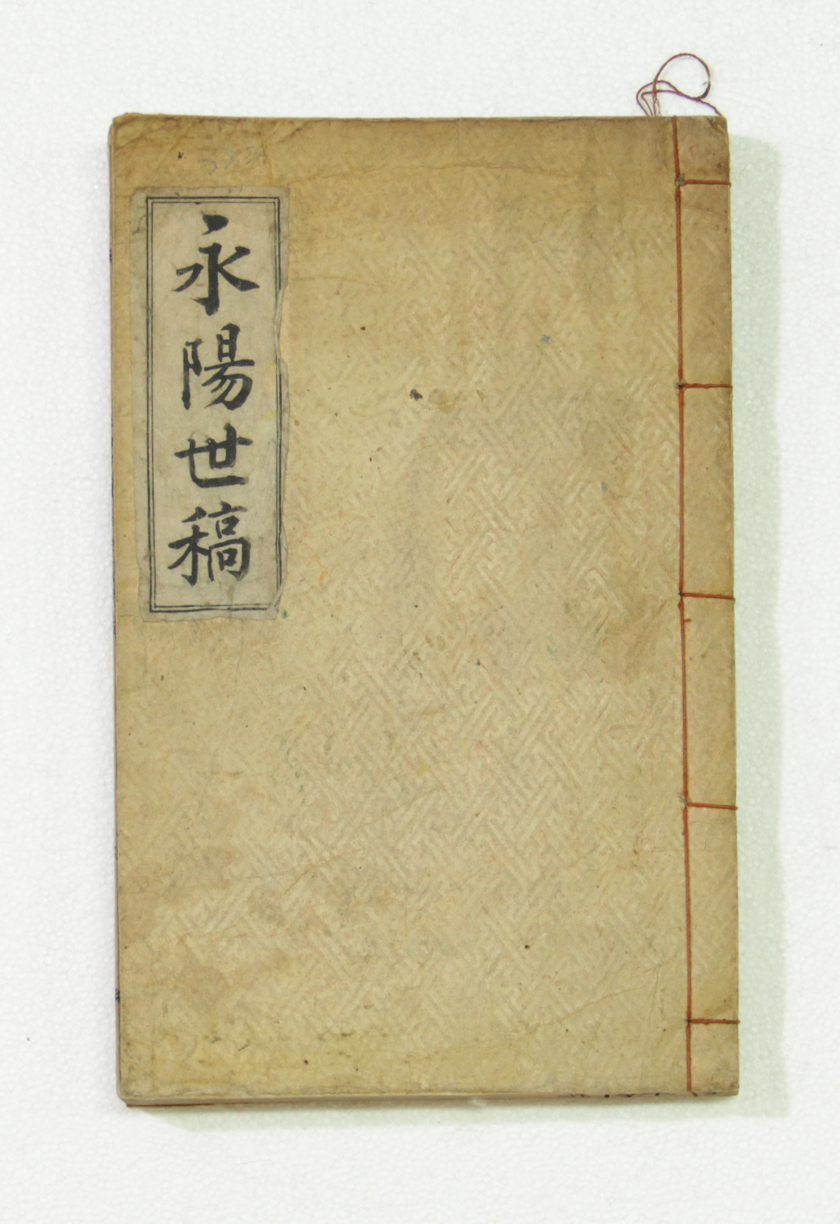 永陽世稿